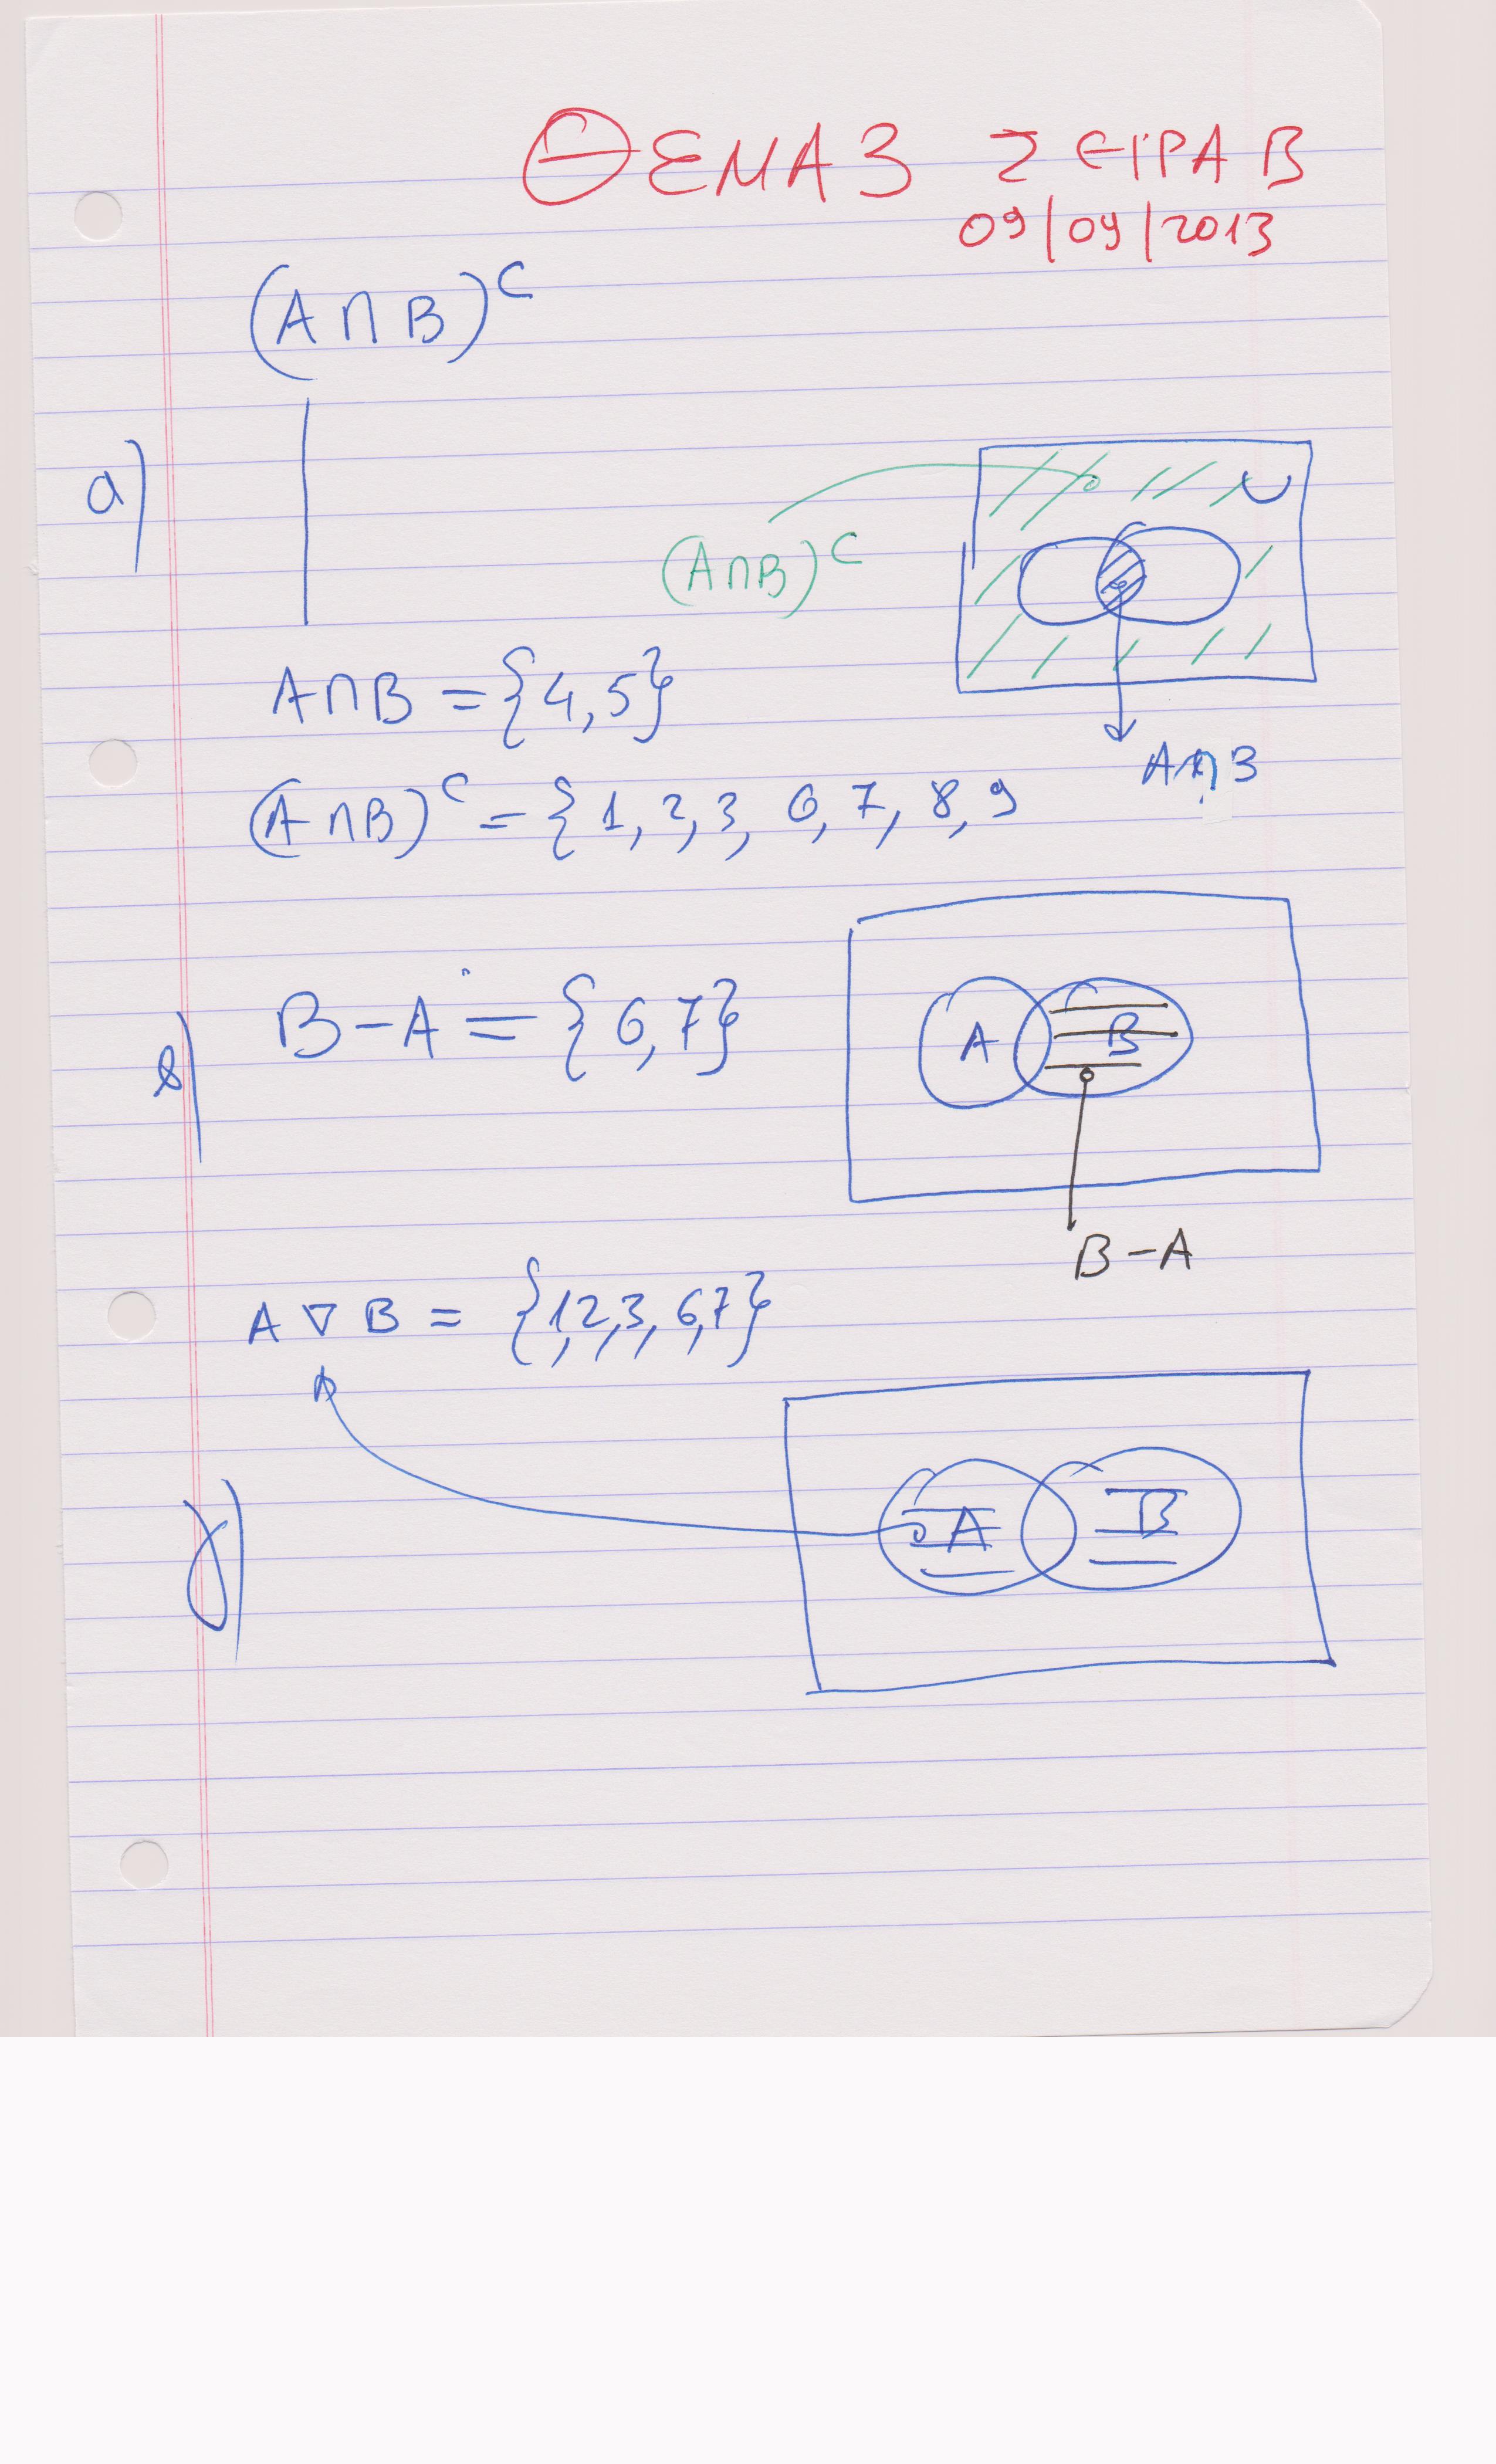 ΘΕΜΑ 3 ΣΕΙΡΑ Β
09/09/2013
(A∩B)^C
α)
U
(A∩B)^C
A∩B = {4,5}
A∩B
(A∩B)^C = {1, 2, 3, 6, 7, 8, 9
β)
B-A = {6,7}
A B
B-A
A ▽ B = {1,2,3, 6,7}
γ)
A B